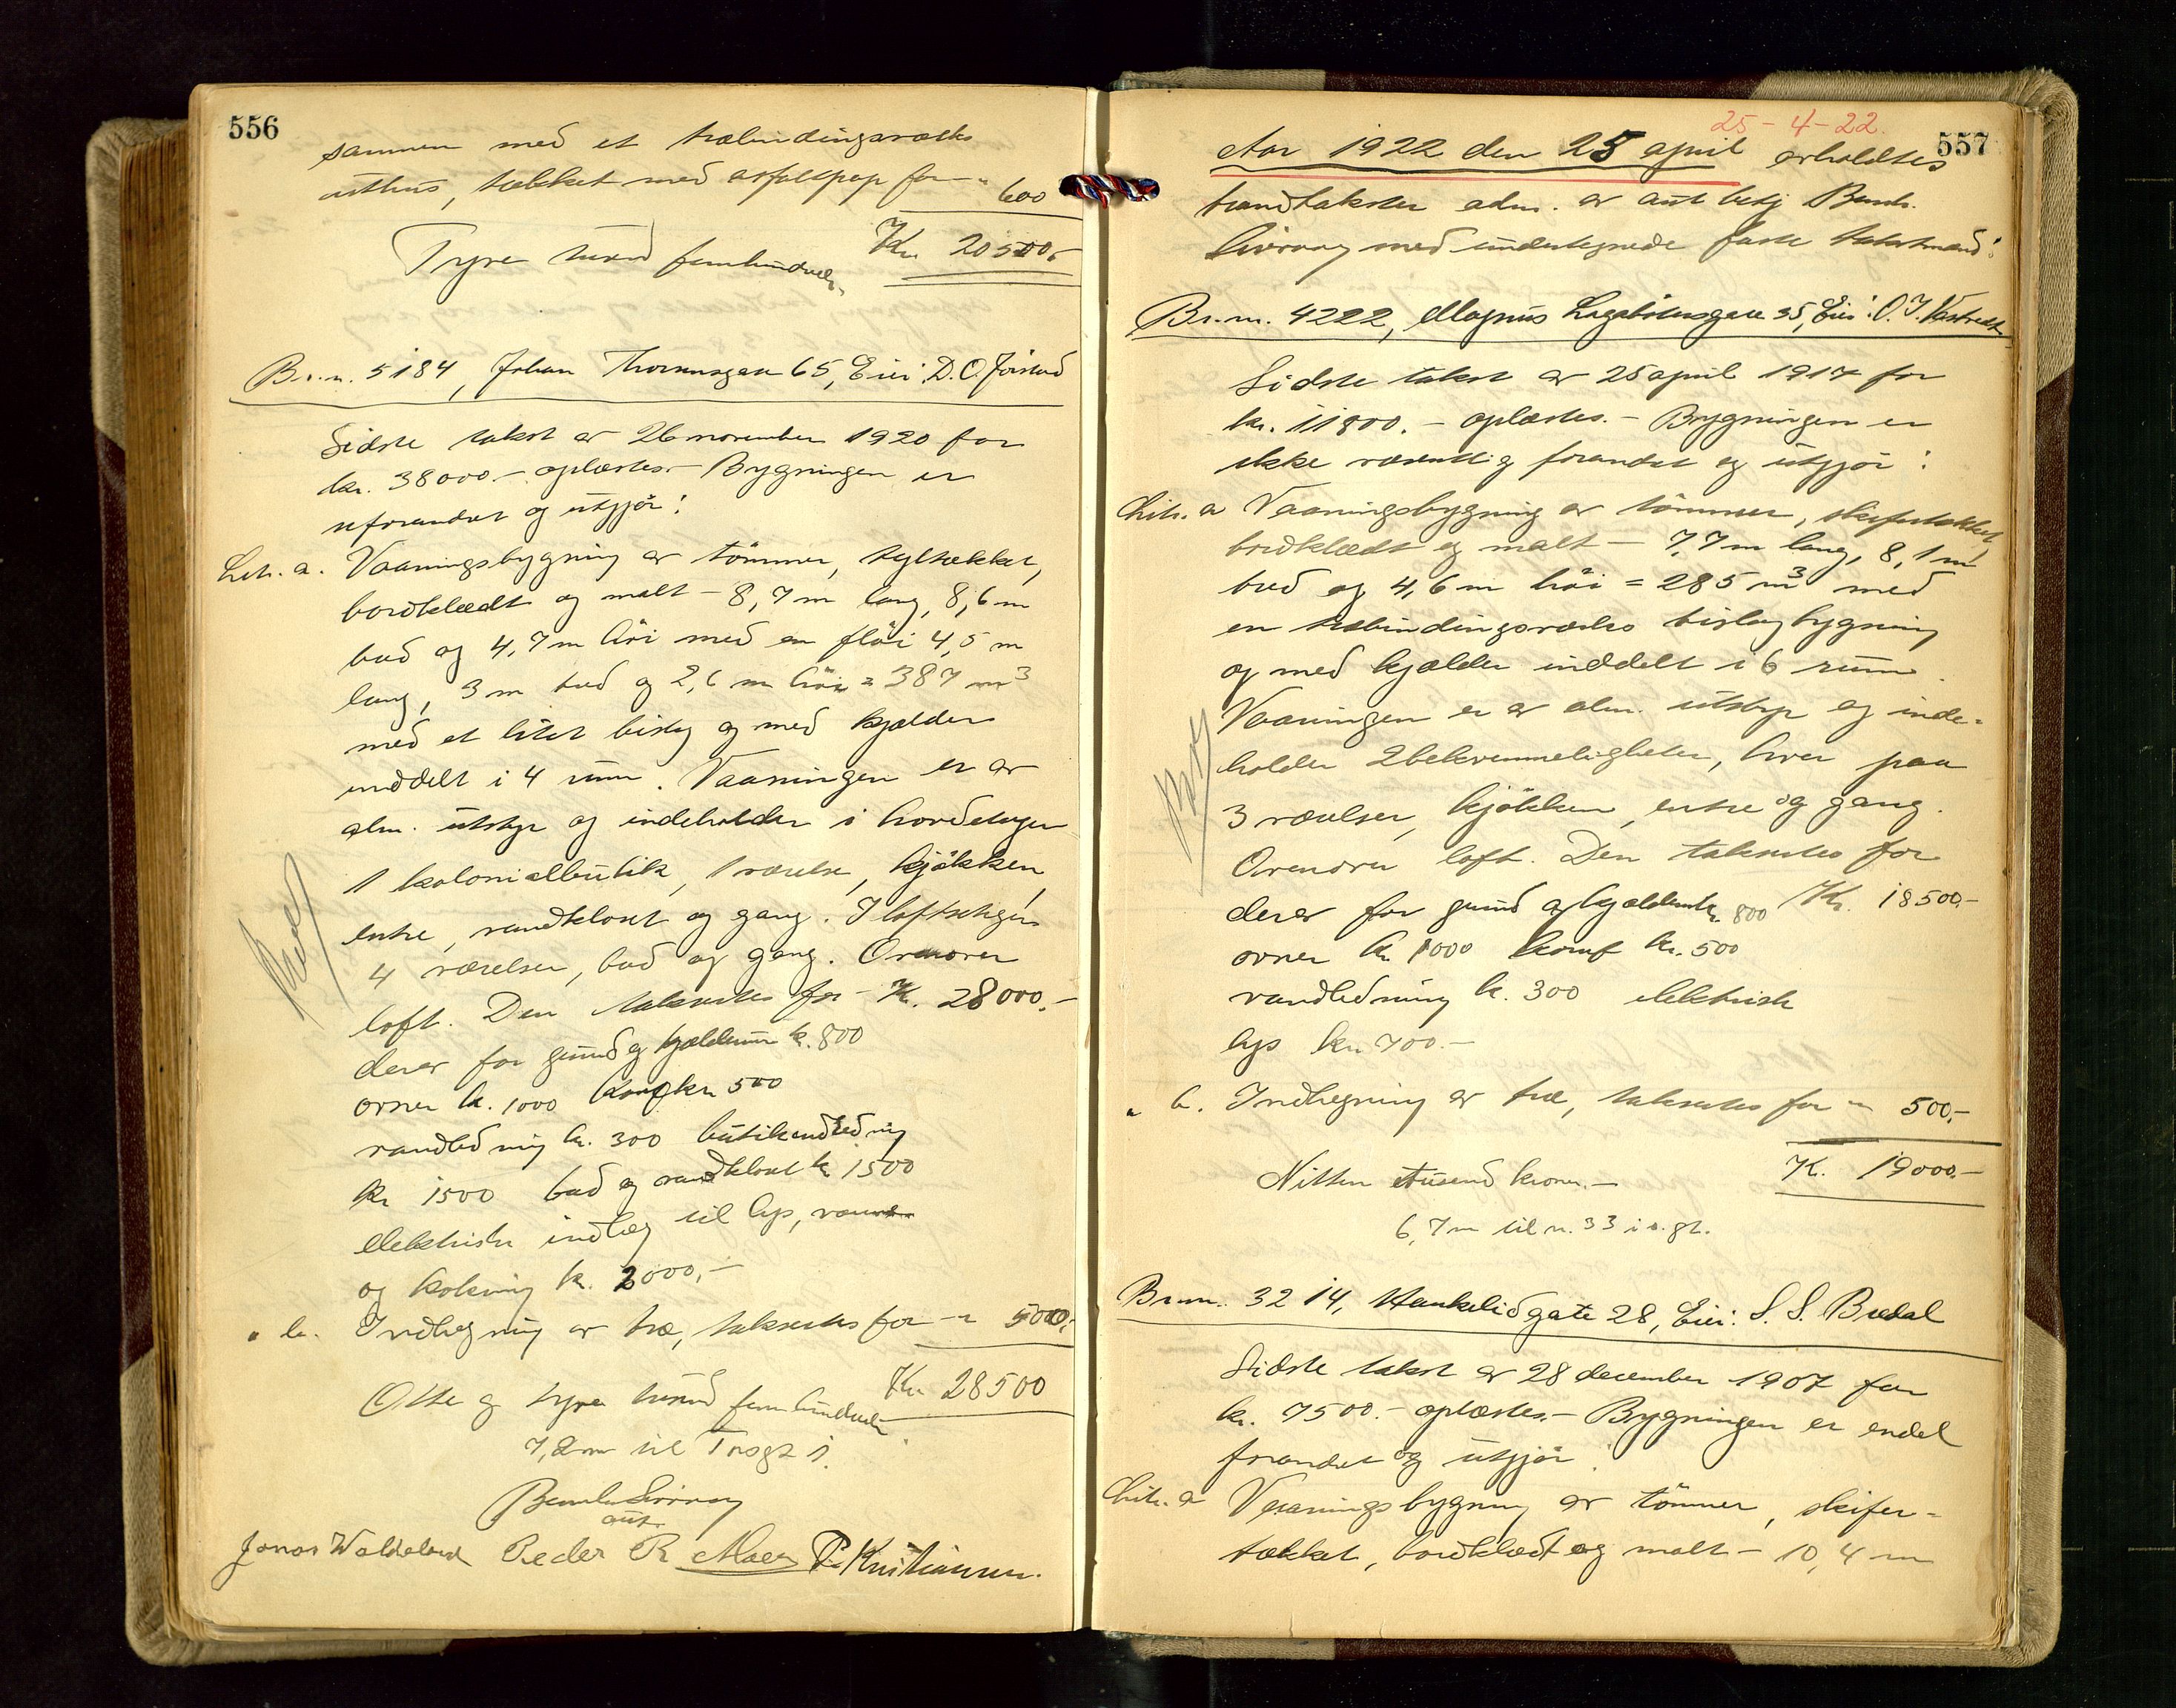 556
sammen med et træbindingsverks
uthus, tækket med asfaltpap for - " 600
Kr. 20500.-
Tyve tusind femhundrede
Br.n. 5184, Johan Thorsensgate 65, Eier: D. O. Jörstad
Sidste takst av 26 november 1920 for
kr. 38000.- oplæstes.- Bygningen er
uforandret og utgjör:
Litr. a. Vaaningsbygning av tömmer, tegltækket,
bordklædt og malt - 8,7 m lang, 8,6 m
bred og 4,7 m höi med en flöi 4,5 m
lang, 3 m bred og 2,6 m höi = 387 m3
med et litet bislag og med kjelder
inddelt i 4 rum. Vaaningen er av
alm. utstyr og indeholder i hovedetagen
1 kolonialbutik, 1 værelse, kjökken,
entre, vandkloset og gang. I loftsetagen
4 værelser, bad og gang. Ovenover
loft. Den takseres for - Kr. 28000.-
derav for grund og kjelderrum kr. 800
ovner kr. 1000 komf kr. 500
vandledning kr. 300 butikindredning
kr 1500 bad og vandkloset kr 1500
elektrisk indlæg til lys, varme
og kokning kr. 2000,-
" b. Indhegning av træ, takseres for - " 500,-
Kr. 28500
Otte og tyve tusind fem hundrede
7,2 m til
Bernh. Sivertsen
aut.
Jonas Waldeland Peder R. Moen P. Kristiansen.
557
25-4-22.
Aar 1922 den 25 april avholdtes
brandtakster adm. av aut besg Bernh.
Sivertsen med undertegnede faste takstmænd:
Br.n. 4222, Magnus Lagabötersgate 35, Eier: O. J.
Sidste takst av 25 april 1917 for
kr. 11800.- oplæstes.- Bygningen er
ikke væsentlig forandret og utgjör:
Litr. a Vaaningsbygning av tömmer, skifertækket,
bordklædt og malt - 7,7 m lang, 8,1 m
bred og 4,6 m höi = 285 m3 med
en træbindingsverks bislagbygning
og med kjælder inddelt i 6 rum.
Vaaningen er av alm. utstyr og inde-
holder 2 bekvemmeligheter, hver paa
3 værelser, kjökken, entre og gang.
Ovenover loft. Den takseres for
derav for grund og kjelderrum kr. 800 Kr. 18500.-
ovner kr. 1000 komf kr. 500
vandledning kr. 300 elektrisk
lys kr. 700.-
" b. Indhegning av træ, takseres for - " 500,-
Kr. 19000.-
Nitten tusend kroner.-
6,7 m til n. 33 i s. gt.
Br.n. 3214, Haukeligate 28, Eier: S. S. Bredal
Sidste takst av 28 december 1907 for
kr. 7500.- oplæstes.- Bygningen er endel
forandret og utgjör:
Litr. a Vaaningsbygning av tömmer, skifer-
tækket, bordklædt og malt - 10,4 m